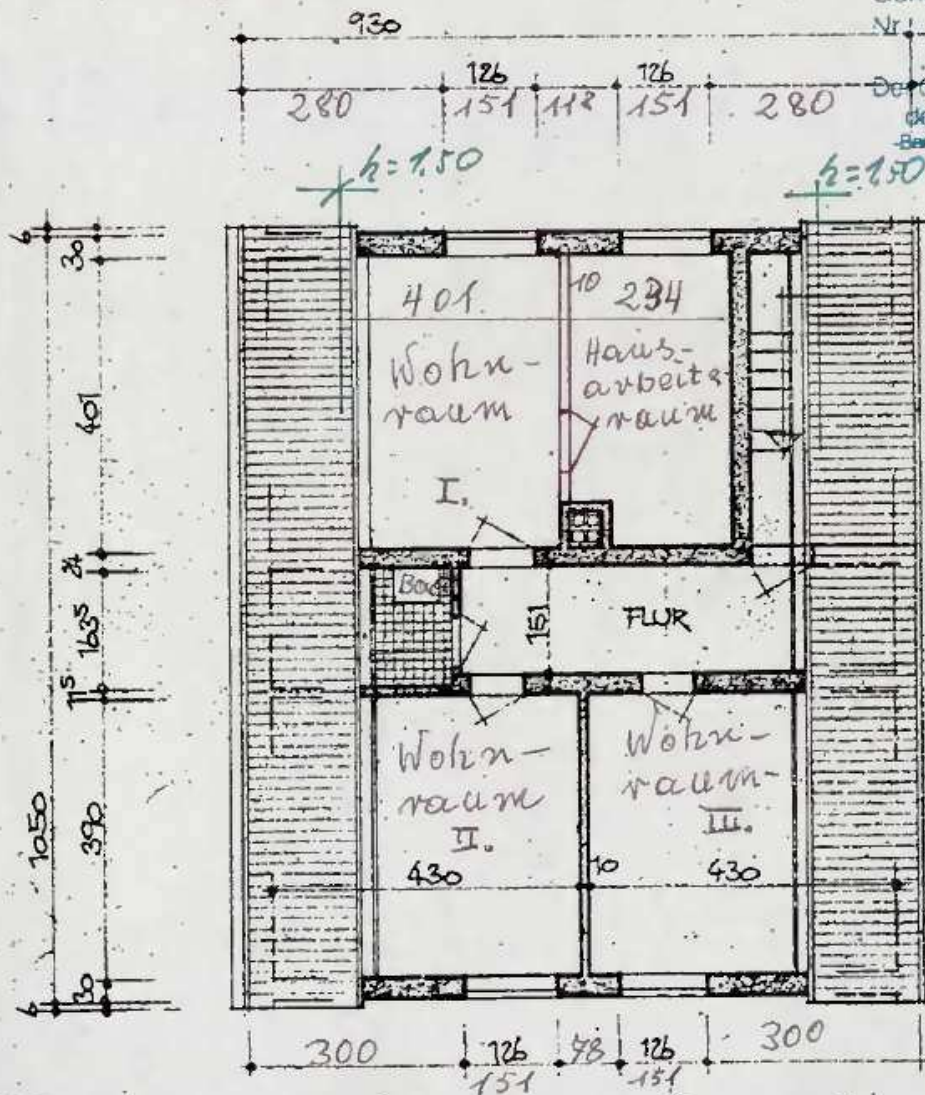 930
Nr.
126 126
280 151 118 151 280
h=1.50 h=1.50
6
30
401
24
163⁵
11⁵
390
30
6
1050
401 10 294
Wohn-
raum
I.
Haus-
arbeits-
raum
Bad
151
FLUR
Wohn-
raum
II.
Wohn-
raum-
III.
430 10 430
300 126 78 126 300
151 151